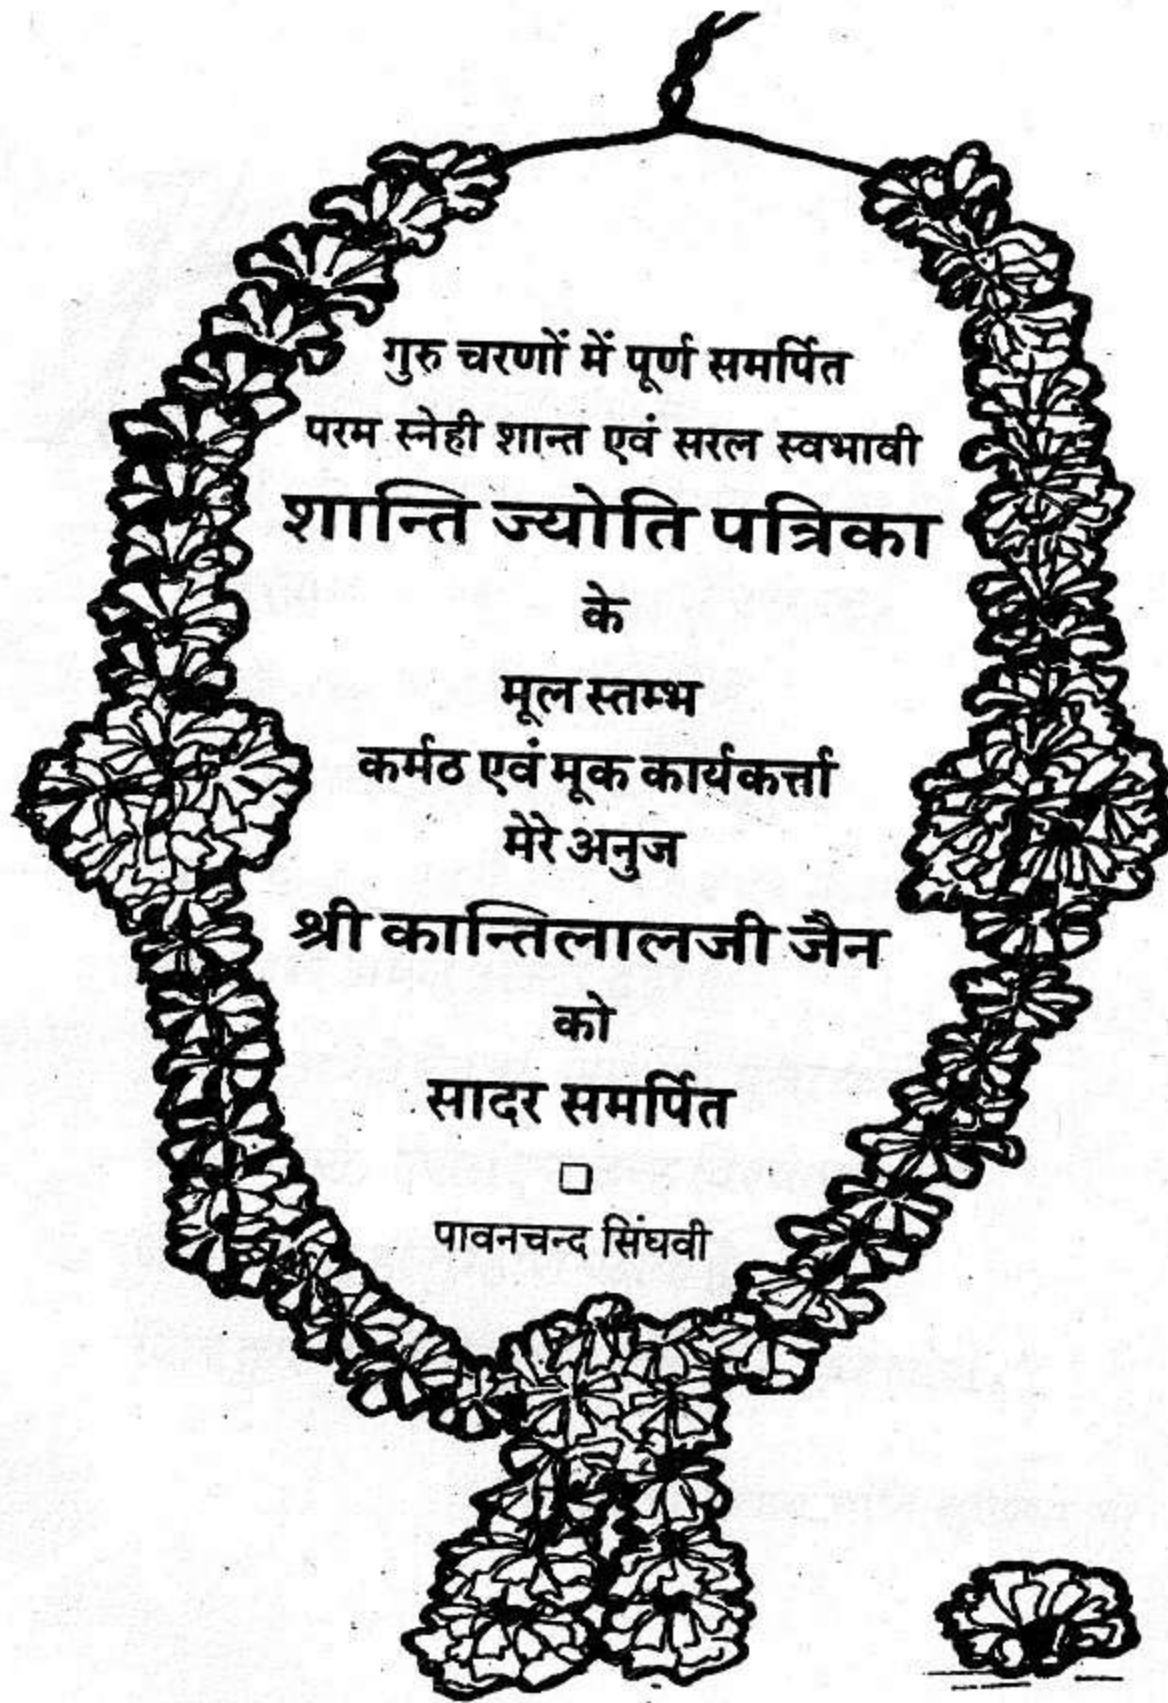 गुरु चरणों में पूर्ण समर्पित
परम स्नेही शान्त एवं सरल स्वभावी
शान्ति ज्योति पत्रिका
के
मूल स्तम्भ
कर्मठ एवं मूक कार्यकर्त्ता
मेरे अनुज
श्री कान्तिलालजी जैन
को
सादर समर्पित
पावनचन्द सिंघवी